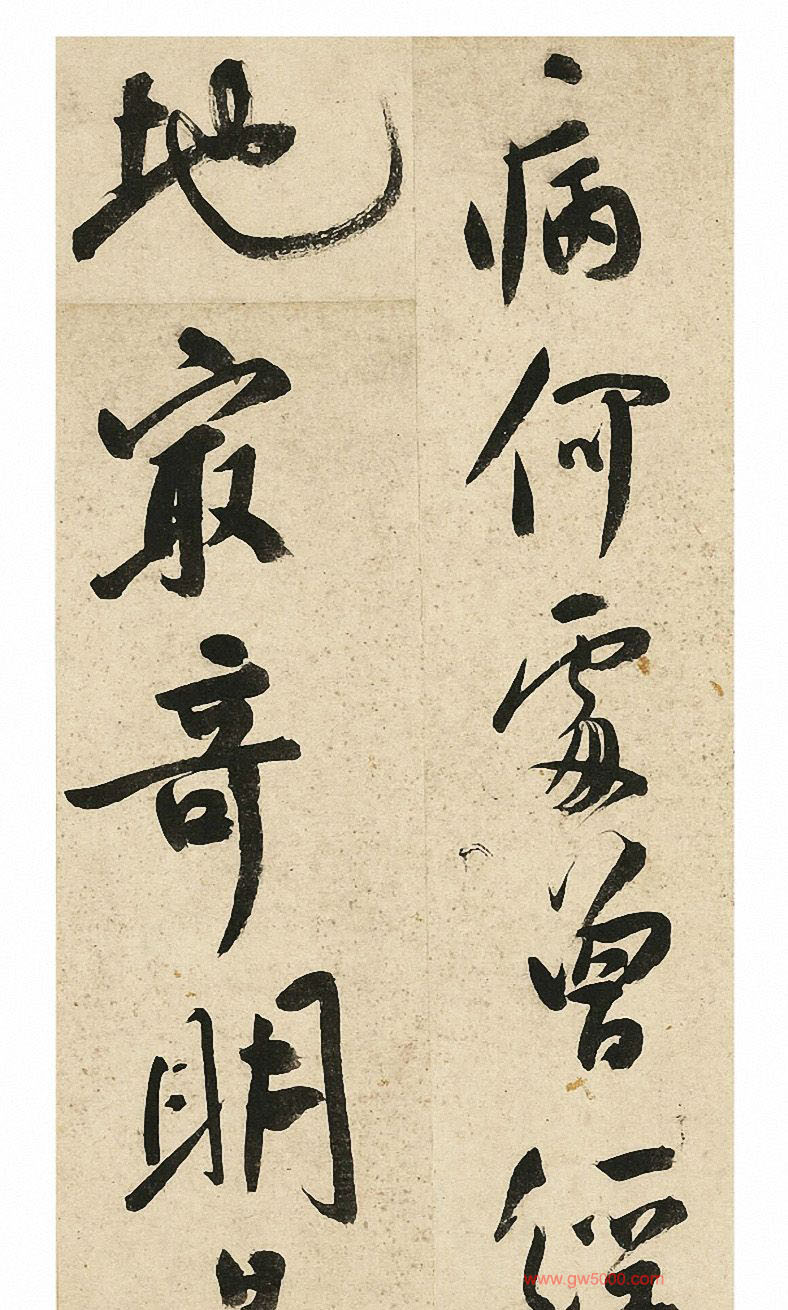 病何處曾經
地冣竒明
www.gw5000.com